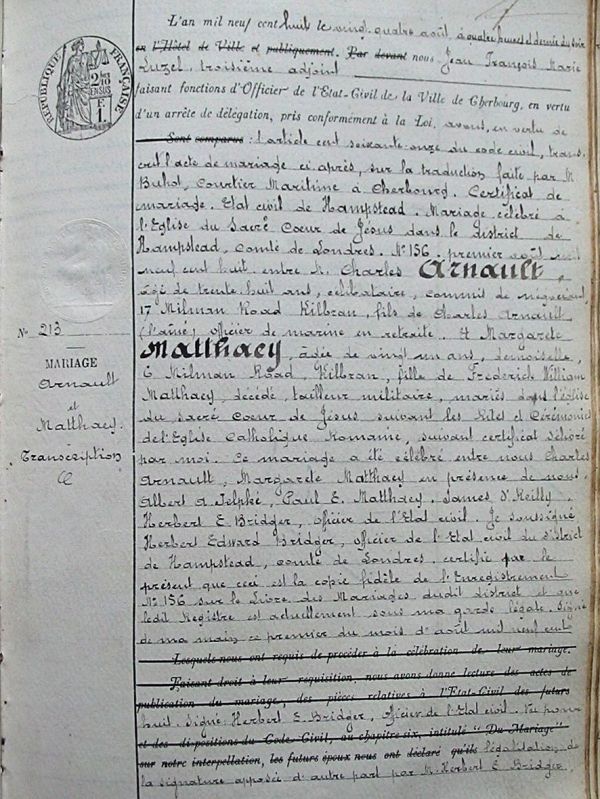 L'an mil neuf cent huit le vingt quatre août, à quatre heures et demie du soir
en l'Hôtel de Ville et publiquement. Par devant nous Jean François Marie
Luzel, troisième adjoint
faisant fonctions d'Officier de l'Etat-Civil de la Ville de Cherbourg, en vertu
d'un arrêté de délégation, pris conformément à la Loi, avons, en vertu de
Sont comparus: l'article cent soixante-onze du code civil, trans
crit l'acte de mariage ci après, sur la traduction faite par M
Buhot, Courtier Maritime à Cherbourg. Certificat de
mariage. Etat civil de Hampstead. Mariage célébré à
l'Eglise du Sacré Coeur de Jésus dans le district de
Hampstead, comté de Londres. N° 156. premier août mil
neuf cent huit, entre M. Charles Arnault,
âgé de trente huit ans, célibataire, commis de négociant,
17 Milman Road Kilbran, fils de Charles Arnault
(l'aîné) officier de marine en retraite. Et Margarete
Matthaey, âgée de vingt un ans, demoiselle,
6 Milman Road, Kilbran, fille de Frederick William
Matthaey, décédé, tailleur militaire, mariés dans l'église
du Sacré Coeur de Jésus suivant les Rites et Cérémonies
de l'Eglise Catholique Romaine, suivant certificat délivré
par moi. Ce mariage a été célébré entre nous Charles
Arnault, Margarete Matthaey en présence de nous,
Albert A. Paul E. Matthaey, James O'Reilly,
Herbert E. Bridger, officier de l'Etat civil. Je soussigné
Herbert Edward Bridger, officier de l'Etat civil du district
de Hampstead, comté de Londres, certifie par le
présent que ceci est la copie fidèle de l'Enregistrement
N° 156 sur le Livre des Mariages dudit district et que
ledit Registre est actuellement sous ma garde légale. Signé
de ma main, ce premier du mois d'août mil neuf cent
Lesquels nous ont requis de procéder à la célébration de leur mariage.
Faisant droit à leur requisition, nous avons donné lecture des actes de
publication du mariage, des pièces relatives à l'Etat-Civil des futurs
huit. Signé: Herbert E. Bridger, officier de l'Etat civil. Vu pour
et des dispositions du Code Civil, au chapitre six, intitulé "Du Mariage"
sur notre interpellation, les futurs époux nous ont déclaré qu'ils légalisation de
la signature apposée d'autre part par M. Herbert E. Bridger,
RÉPUBLIQUE FRANÇAISE
2/10 EN SUS
1 F.
N° 213
MARIAGE
Arnault
et
Matthaey.
Transcription